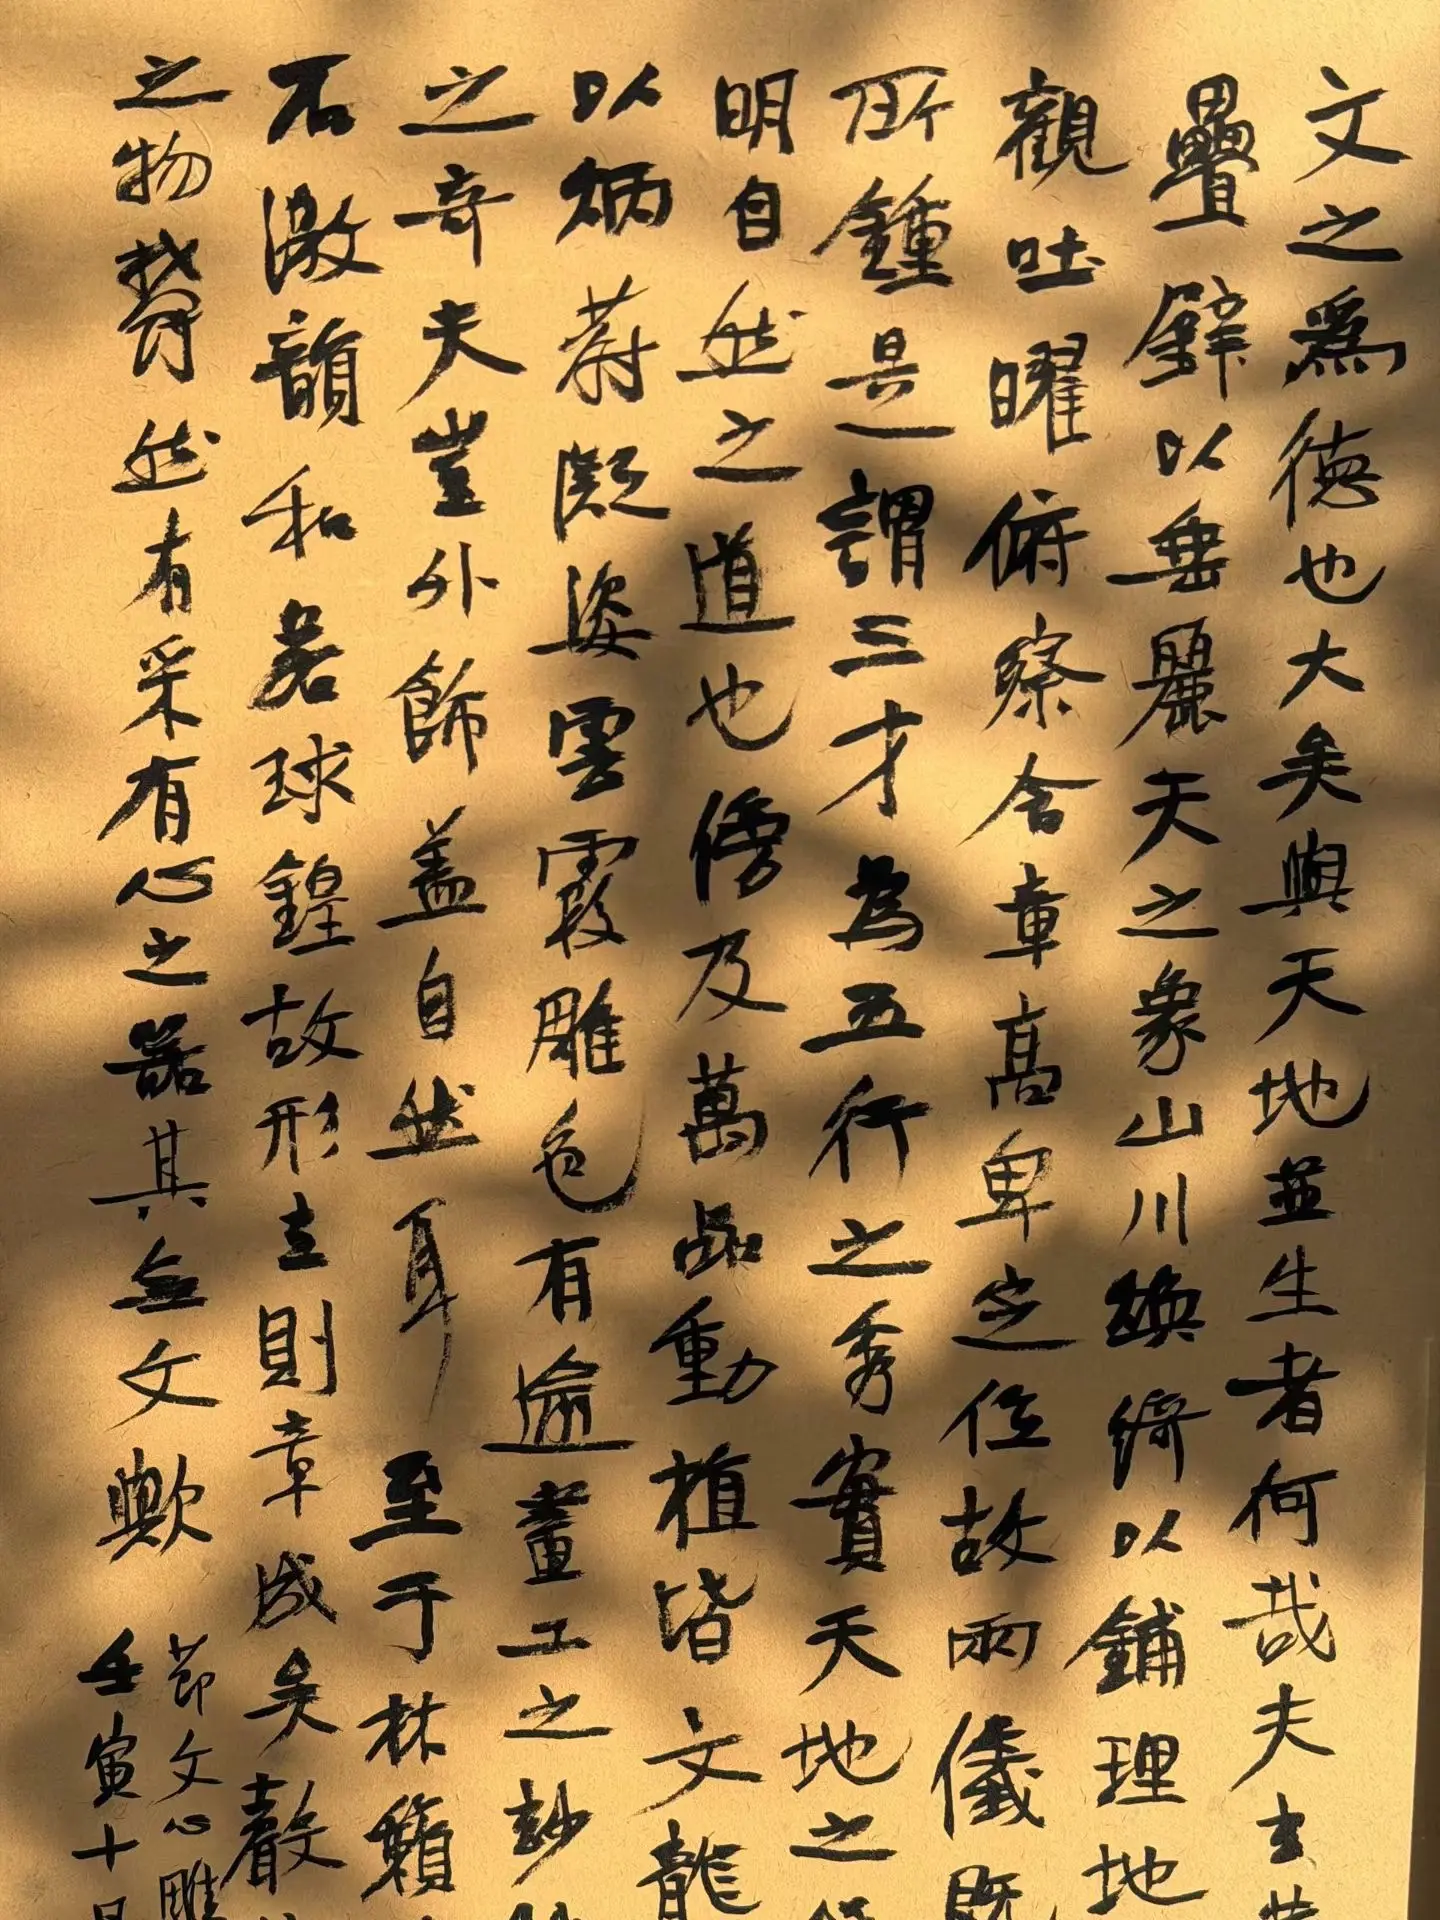 文之爲德也大矣與天地並生者何哉夫玄
疊璧以垂麗天之象山川煥綺以鋪理地
觀吐曜俯察含章高卑定位故兩儀既
所鍾是謂三才為五行之秀實天地之
明自然之道也傍及萬品動植皆文龍
以炳蔚凝姿雲霞雕色有逾畫工之妙
之奇夫豈外飾蓋自然耳至于林籟
石激韻和若球鍠故形立則章成矣聲
之物鬱然有采有心之器其無文歟
節文心雕
壬寅十月